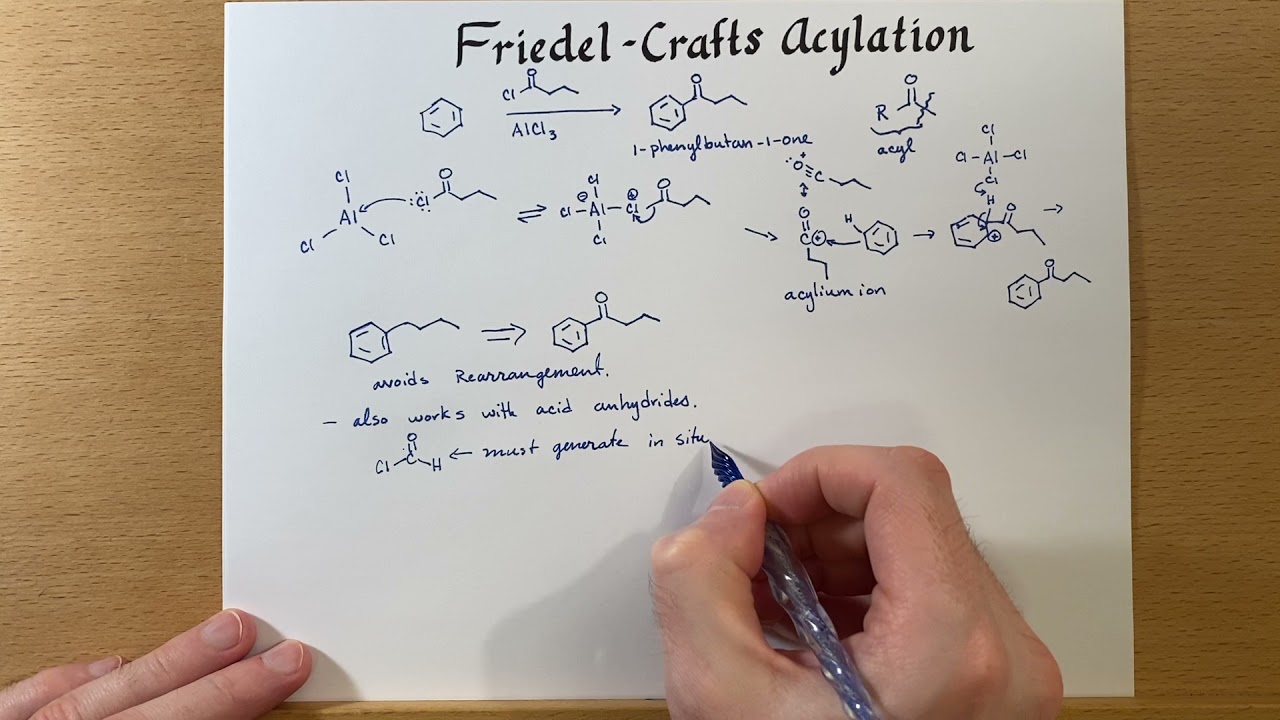 Friedel-Crafts Acylation
O
Cl
AlCl3
O
1-phenylbutan-1-one
O
R
acyl
Cl
Al
Cl
Cl
:Cl
O
Cl
⊖
Cl-Al-Cl
⊕
Cl
O
:O≡C
+
O
C⊕
acylium ion
H
Cl
Cl-Al-Cl
Cl
H
O
⊕
O
O
avoids Rearrangement.
- also works with acid anhydrides.
O
Cl C H ← must generate in situ